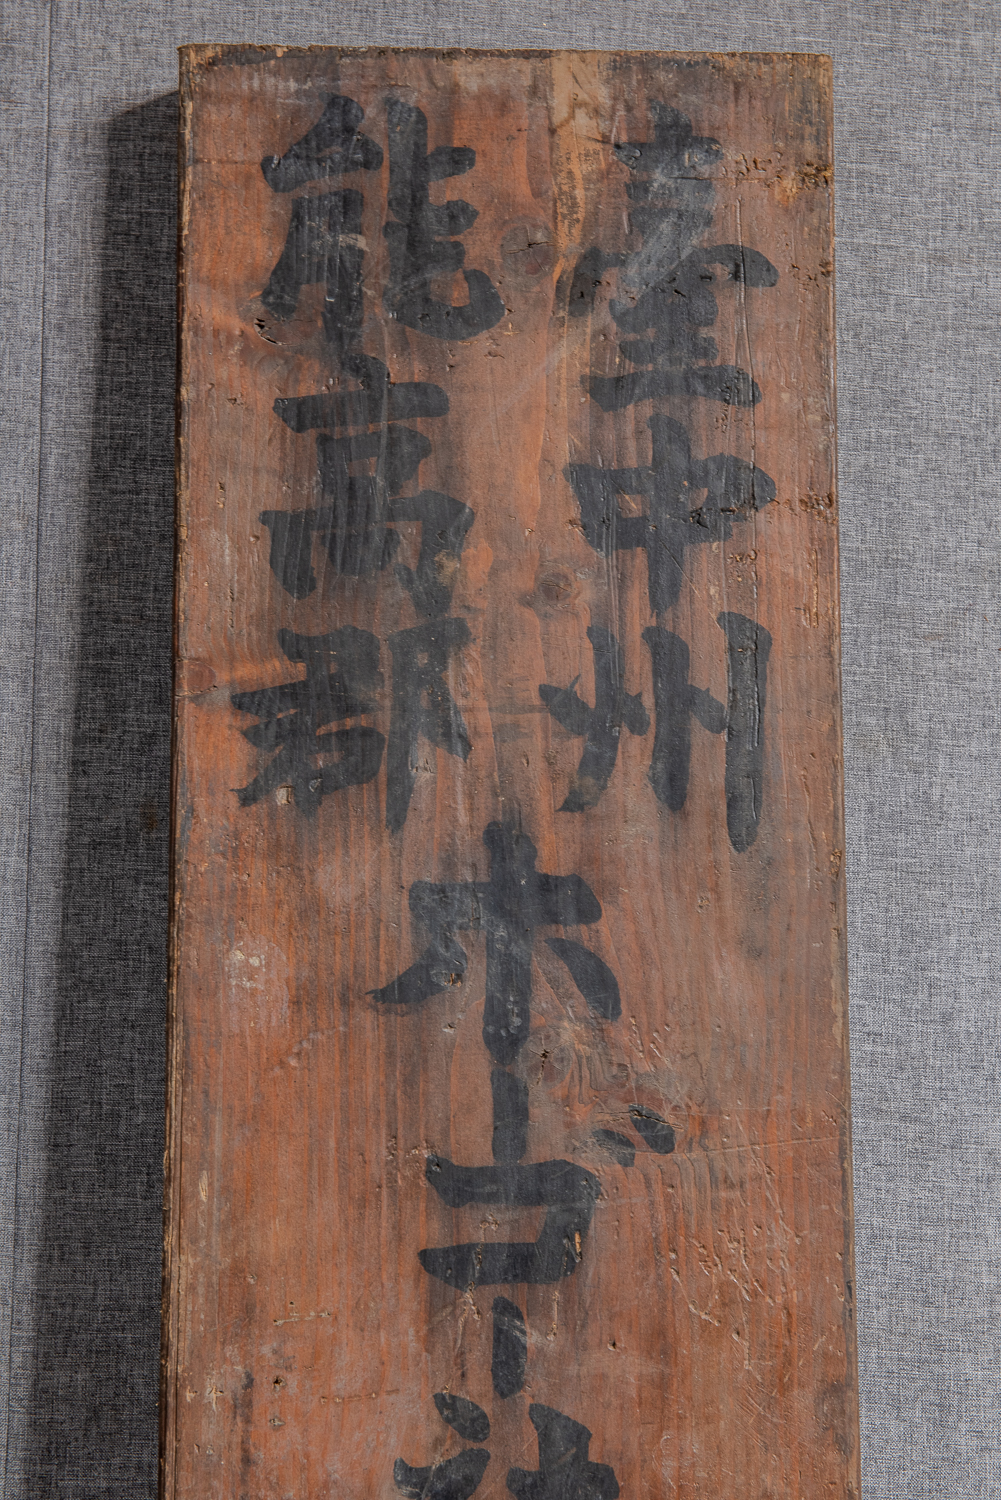 臺中州
能高郡
ホーゴー社